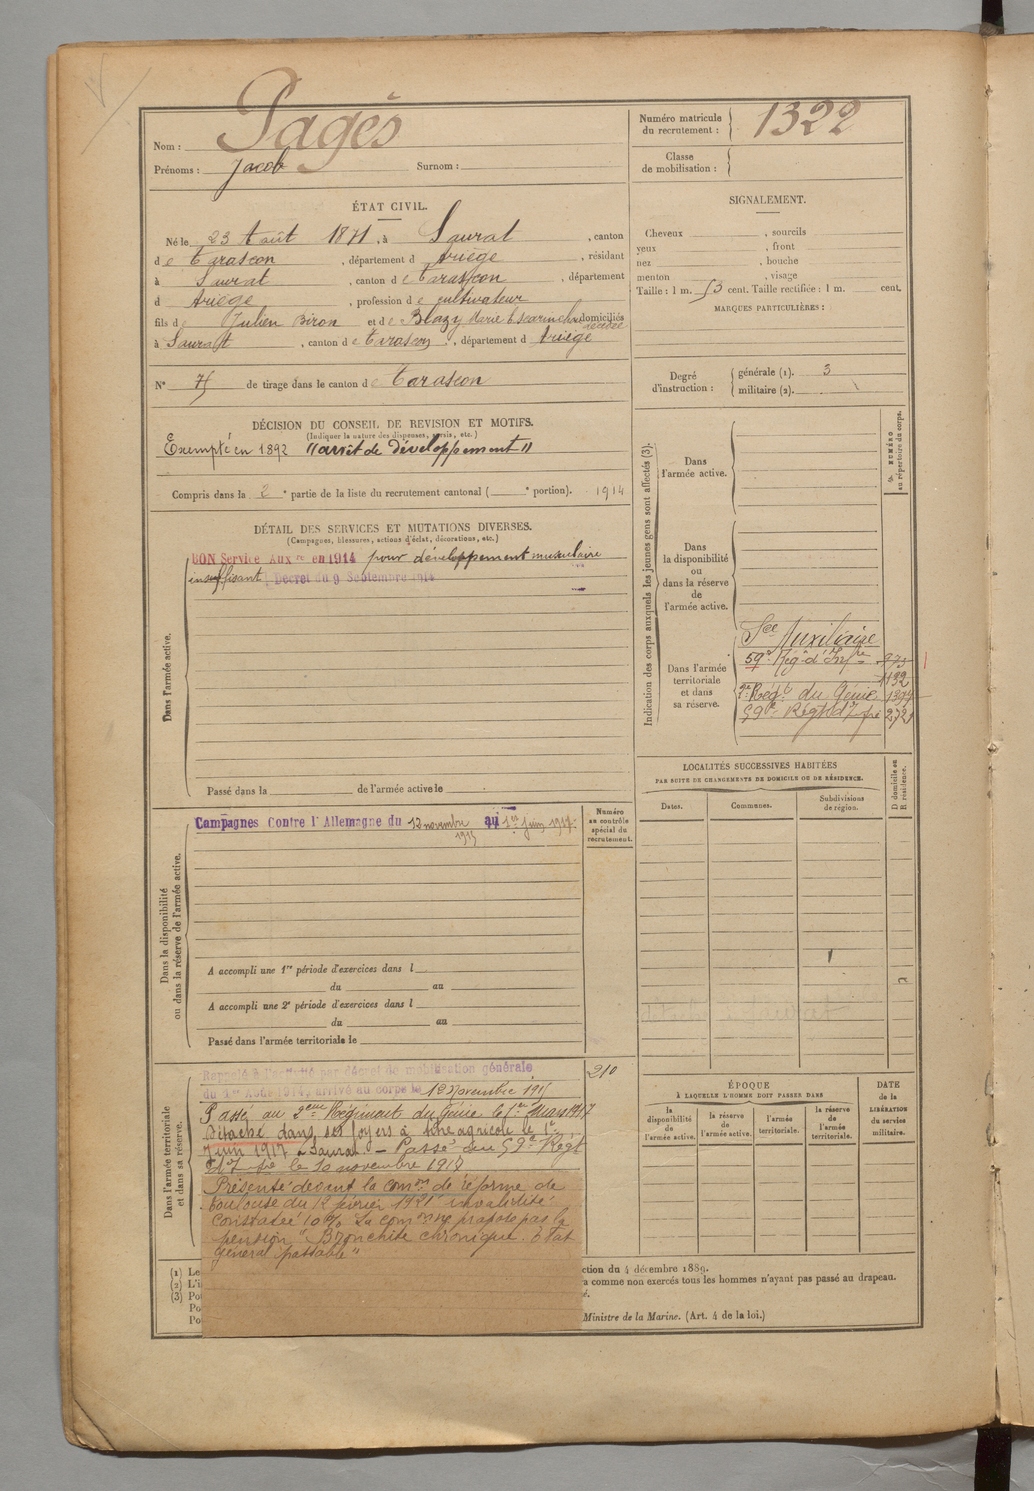 Nom : Pagès
Prénoms : Jacob Surnom :
Numéro matricule du recrutement : 1322
Classe de mobilisation :
ÉTAT CIVIL.
Né le 23 Août 1871, à Saurat, canton
de Tarascon, département d Ariège, résidant
à Saurat, canton de Tarascon, département
d Ariège, profession de cultivateur
fils de Julien Biron et de Blazy Marie domiciliés
à Saurat, canton de Tarascon, département d Ariège
N° 75 de tirage dans le canton de Tarascon
SIGNALEMENT.
Cheveux , sourcils
yeux , front
nez , bouche
menton , visage
Taille : 1 m. 53 cent. Taille rectifiée : 1 m. cent.
MARQUES PARTICULIÈRES :
Degré d'instruction : générale (1). 3
militaire (2).
DÉCISION DU CONSEIL DE REVISION ET MOTIFS.
(Indiquer la nature des dispenses, sursis, etc.)
Exempté en 1892 "arrêt de développement"
Compris dans la 2e partie de la liste du recrutement cantonal ( e portion). 1914
DÉTAIL DES SERVICES ET MUTATIONS DIVERSES.
(Campagnes, blessures, actions d'éclat, décorations, etc.)
BON Service Auxre en 1914 pour développement musculaire
insuffisant Décret du 9 Septembre 1914
Dans l'armée active.
Passé dans la de l'armée active le
Campagnes Contre l'Allemagne du 12 novembre 1915 au 1er juin 1917.
Numéro au contrôle spécial du recrutement.
Dans la disponibilité ou dans la réserve de l'armée active.
A accompli une 1re période d'exercices dans l
du au
A accompli une 2e période d'exercices dans l
du au
Passé dans l'armée territoriale le
Dans l'armée territoriale et dans sa réserve.
Rappelé à l'activité par décret de mobilisation générale
du 1er Août 1914, arrivé au corps le 12 Novembre 1915
210
Passé au 2eme Régiment du Génie le 1er Mars 1917
Détaché dans ses foyers à titre agricole le 1er
Juin 1917 à Saurat. - Passé au 59e Régt
d'Infie le 10 novembre 1918
Présenté devant la comon de réforme de
Toulouse du 12 février 1921 invalidité
constatée 10% La comon ne propose pas la
pension "Bronchite chronique. État
général passable"
Indication des corps auxquels les jeunes gens sont affectés (3).
NUMÉRO au répertoire du corps.
Dans l'armée active.
Dans la disponibilité ou dans la réserve de l'armée active.
Dans l'armée territoriale et dans sa réserve.
Sce Auxiliaire
59e Rég. d'Infie 975
1132
2e Régt du Génie 1394
59e Régt d'Infie 2729
LOCALITÉS SUCCESSIVES HABITÉES
PAR SUITE DE CHANGEMENTS DE DOMICILE OU DE RÉSIDENCE.
Dates. Communes. Subdivisions de région. D domicile ou R résidence.
ÉPOQUE
À LAQUELLE L'HOMME DOIT PASSER DANS
la disponibilité de l'armée active.
la réserve de l'armée active.
l'armée territoriale.
la réserve de l'armée territoriale.
DATE de la LIBÉRATION du service militaire.
(1) Le
ction du 4 décembre 1889.
(2) L'i
a comme non exercés tous les hommes n'ayant pas passé au drapeau.
(3) Po
é.
Po
Po
Ministre de la Marine. (Art. 4 de la loi.)